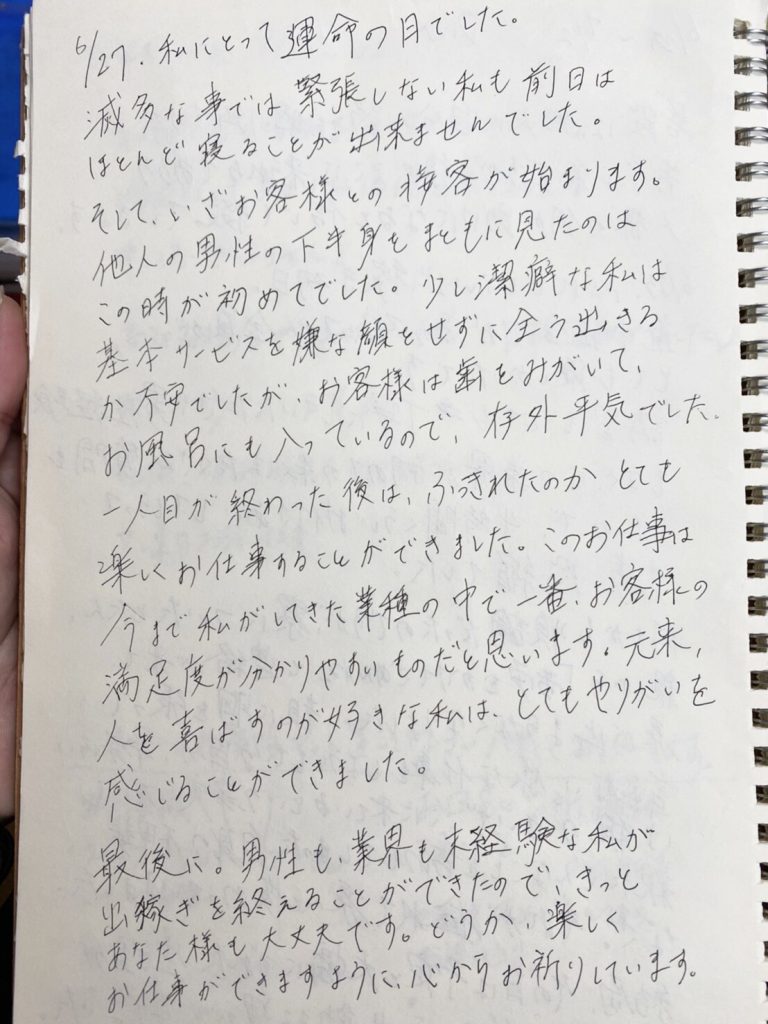 6/27. 私にとって運命の日でした。
滅多な事では緊張しない私も前日は
ほとんど寝ることが出来ませんでした。
そして、いざお客様との接客が始まります。
他人の男性の下半身をまともに見たのは
この時が初めてでした。少し潔癖な私は
基本サービスを嫌な顔をせずに全う出きる
か不安でしたが、お客様は歯をみがいて、
お風呂にも入っているので、存外平気でした。
一人目が終わった後は、ふっきれたのかとても
楽しくお仕事することができました。このお仕事は
今まで私がしてきた業種の中で一番、お客様の
満足度が分かりやすいものだと思います。元来、
人を喜ばすのが好きな私は、とてもやりがいを
感じることができました。
最後に。男性も、業界も未経験な私が
出稼ぎを終えることができたので、きっと
あなた様も大丈夫です。どうか、楽しく
お仕事ができますように、心からお祈りしています。